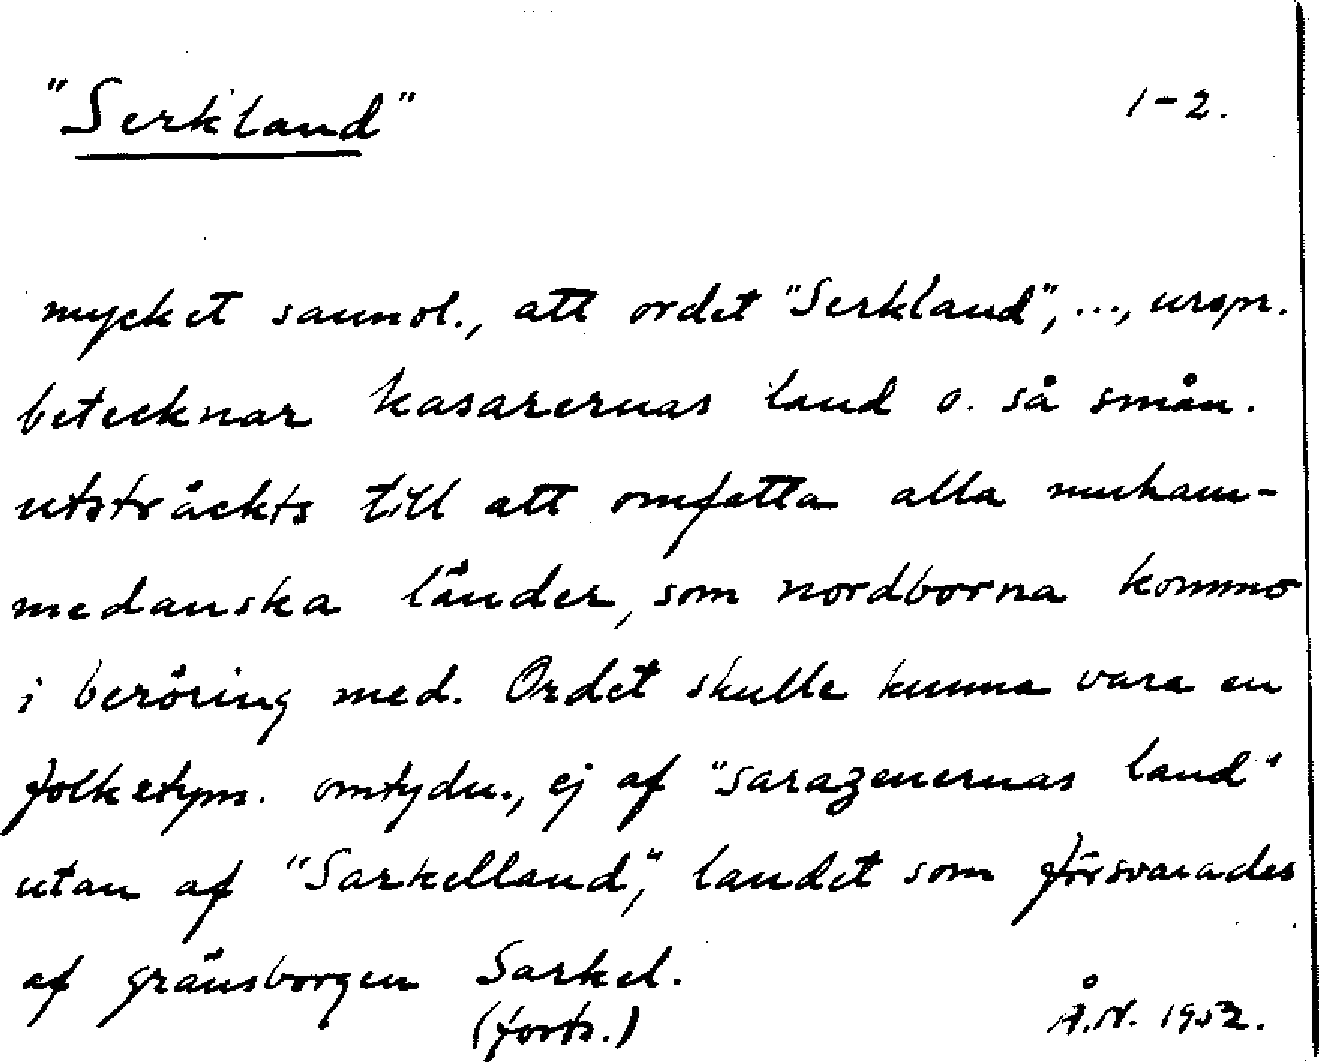 "Serkland"
1-2.
mycket sannol., att ordet "Serkland", ..., urspr.
betecknar kasarernas land o. så smån.
utsträckts till att omfatta alla muham-
medanska länder, som nordborna kommo
i beröring med. Ordet skulle kunna vara en
folketym. omtydn., ej af "sarazenernas land"
utan af "Sarkelland", landet som försvarades
af gränsborgen Sarkel.
(forts.)
Å.N. 1952.